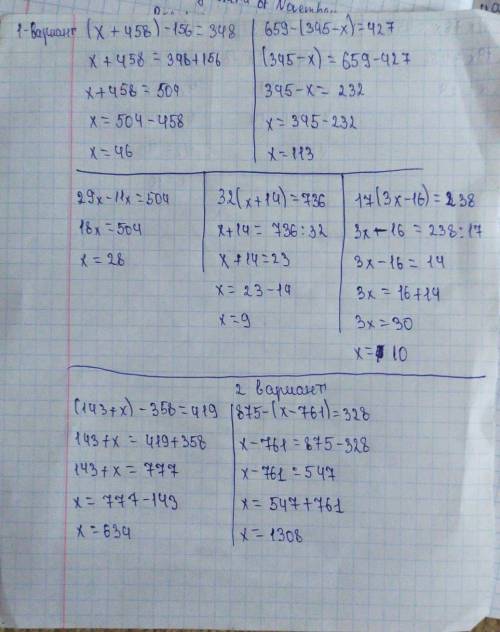 of November
1-вариант
(x+458)-156=348
x+458=348+156
x+458=504
x=504-458
x=46
659-(345-x)=427
(345-x)=659-427
345-x=232
x=345-232
x=113
29x-11x=504
18x=504
x=28
32(x+14)=736
x+14=736:32
x+14=23
x=23-14
x=9
17(3x-16)=238
3x-16=238:17
3x-16=14
3x=16+14
3x=30
x=10
2 вариант
(143+x)-358=419
143+x=419+358
143+x=777
x=777-143
x=634
875-(x-761)=328
x-761=875-328
x-761=547
x=547+761
x=1308